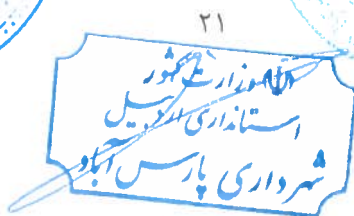 ۲۱
وزارت کشور
استانداری اردبیل
شهرداری پارس آباد